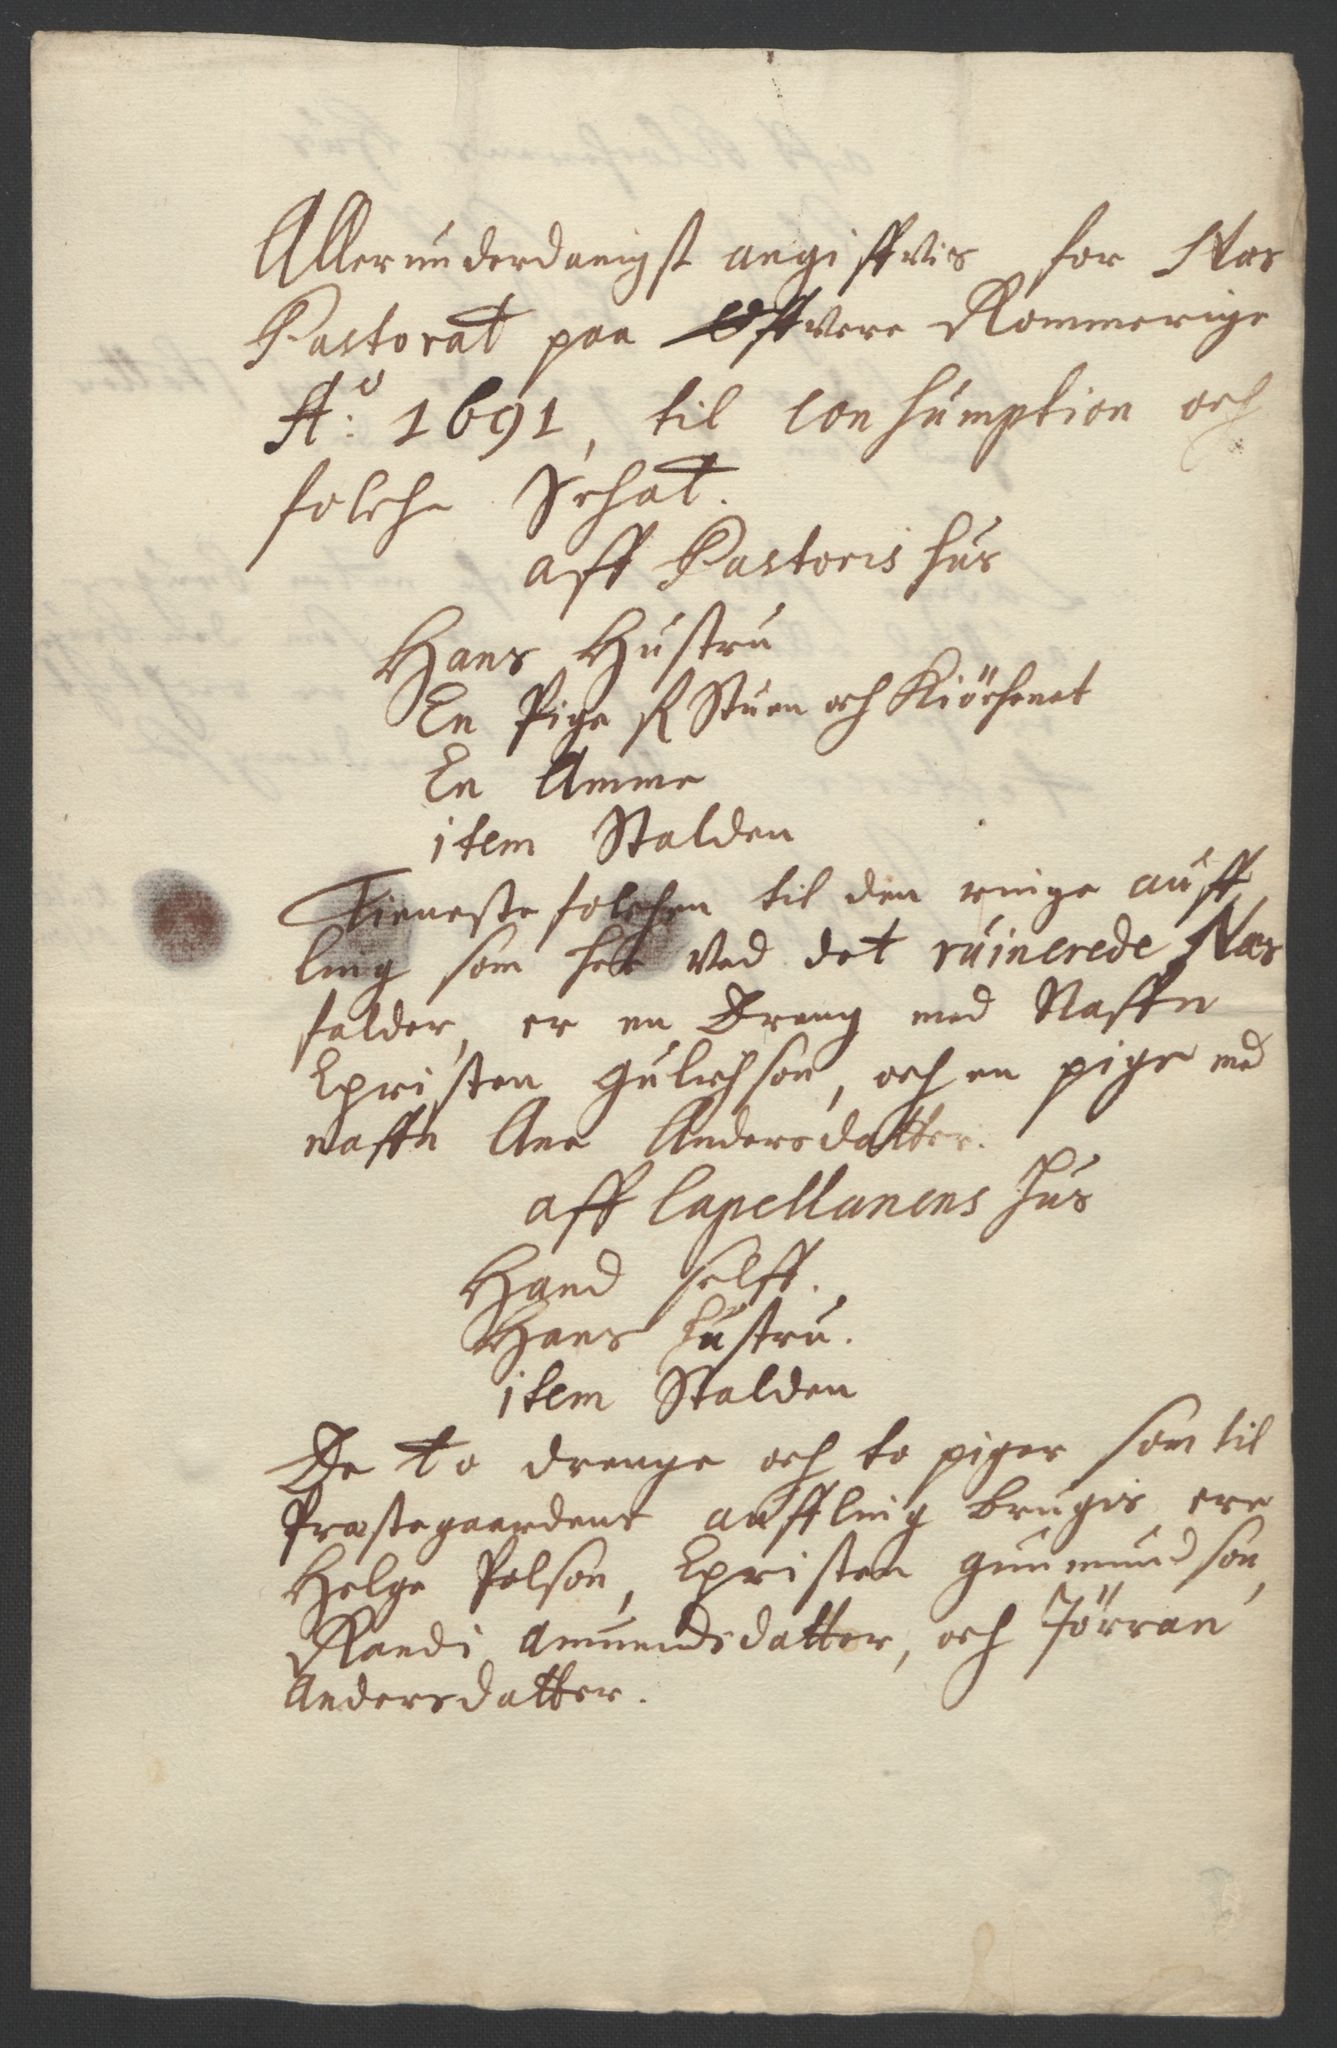 Allerunderdanigst angiffvis for Næs
Pastorat paa Øffvere Rommerige
Aº: 1691, til Consumption och
folche Schat.
aff Pastoris huus
Hans Hustru
En Pige ſ Stuen och Kiöchenet
En Amme
item Stalden
Tieneste folchen til den ringe auff
ling som her ved det ruinerede Næs
falder, er en Dreng med Naffn
Christen Gulichsøn, och en pige med
naffn Ane Andersdatter.
aff Capellanens huus
Hand selff.
Hans hustru.
item Stalden
De to drenge och to piger som til
Præstegaardens auffling brugis, ere
Helge Polsøn, Christen Gunmundsøn,
Randi Amundsdatter, och Jörran
Andersdatter.